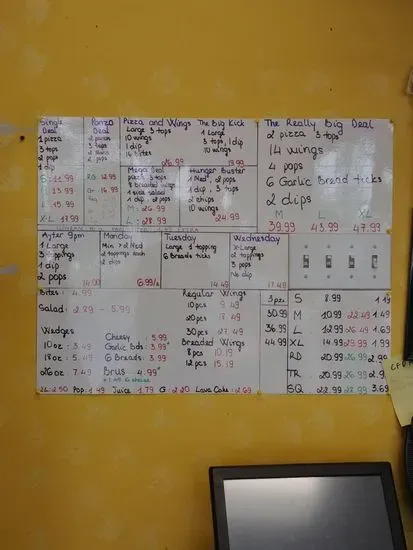 Single
Deal
1 pizza
3 tops
2 pops
1 dip
S: 11.99
M 13.99
L 15.99
X-L 17.99
Panzo
Deal
2 panzo
3 tops
2 pops
RG 12.99
G+ 16.99
Pizza and Wings
Large 3 tops
10 wings
1 dip
16 bites
26.99
The Big Kick
1 Large
3 tops, 1 dip
10 wings
19.99
Mega Deal
pizza 3 tops
8 breaded wings
1 side salad
1 dip, 2 pops
M: 26.99
L: 28.99
Hunger Buster
1 Med, 2 pops
1 dip, 3 tops
2 chips
10 wings
24.99
The Really Big Deal
2 pizza 3 tops
14 wings
4 pops
6 Garlic Bread ticks
2 dips
M L XL
39.99 43.99 47.99
After 9pm
1 Large
3 toppings
1 dip
2 pops
14.00
Monday
Min 2 Med
2 toppings each
2 dips
6.99/
Tuesday
Large 1 topping
6 Breads ticks
Wednesday
X-Large
2 toppings
3 pops
No dip
17.49
Bites: 4.99
Salad: 2.89 - 5.99
Wedges
10oz: 3.49
18oz: 5.49
26oz 7.49
Cheesy: 5.99
Garlic Bds: 3.99
6 Breads: 3.99
Brus 4.99
Regular Wings
10pcs 9.49
20pcs 18.49
30pcs 27.49
Breaded Wings
8pcs 10.19
12pcs 15.19
2L 2.50 Pop: 1.49 Juice: 1.79 G: 2.20 Lava Cake: 2.69
3 pzs
30.99
36.99
44.99
S 8.99 1.19
M 10.99 22.49 1.49
L 12.99 26.49 1.69
XL 14.99 29.99 1.99
RD 20.99 26.99
TR 20.99 26.99
SQ 22.99 22.99 3.69